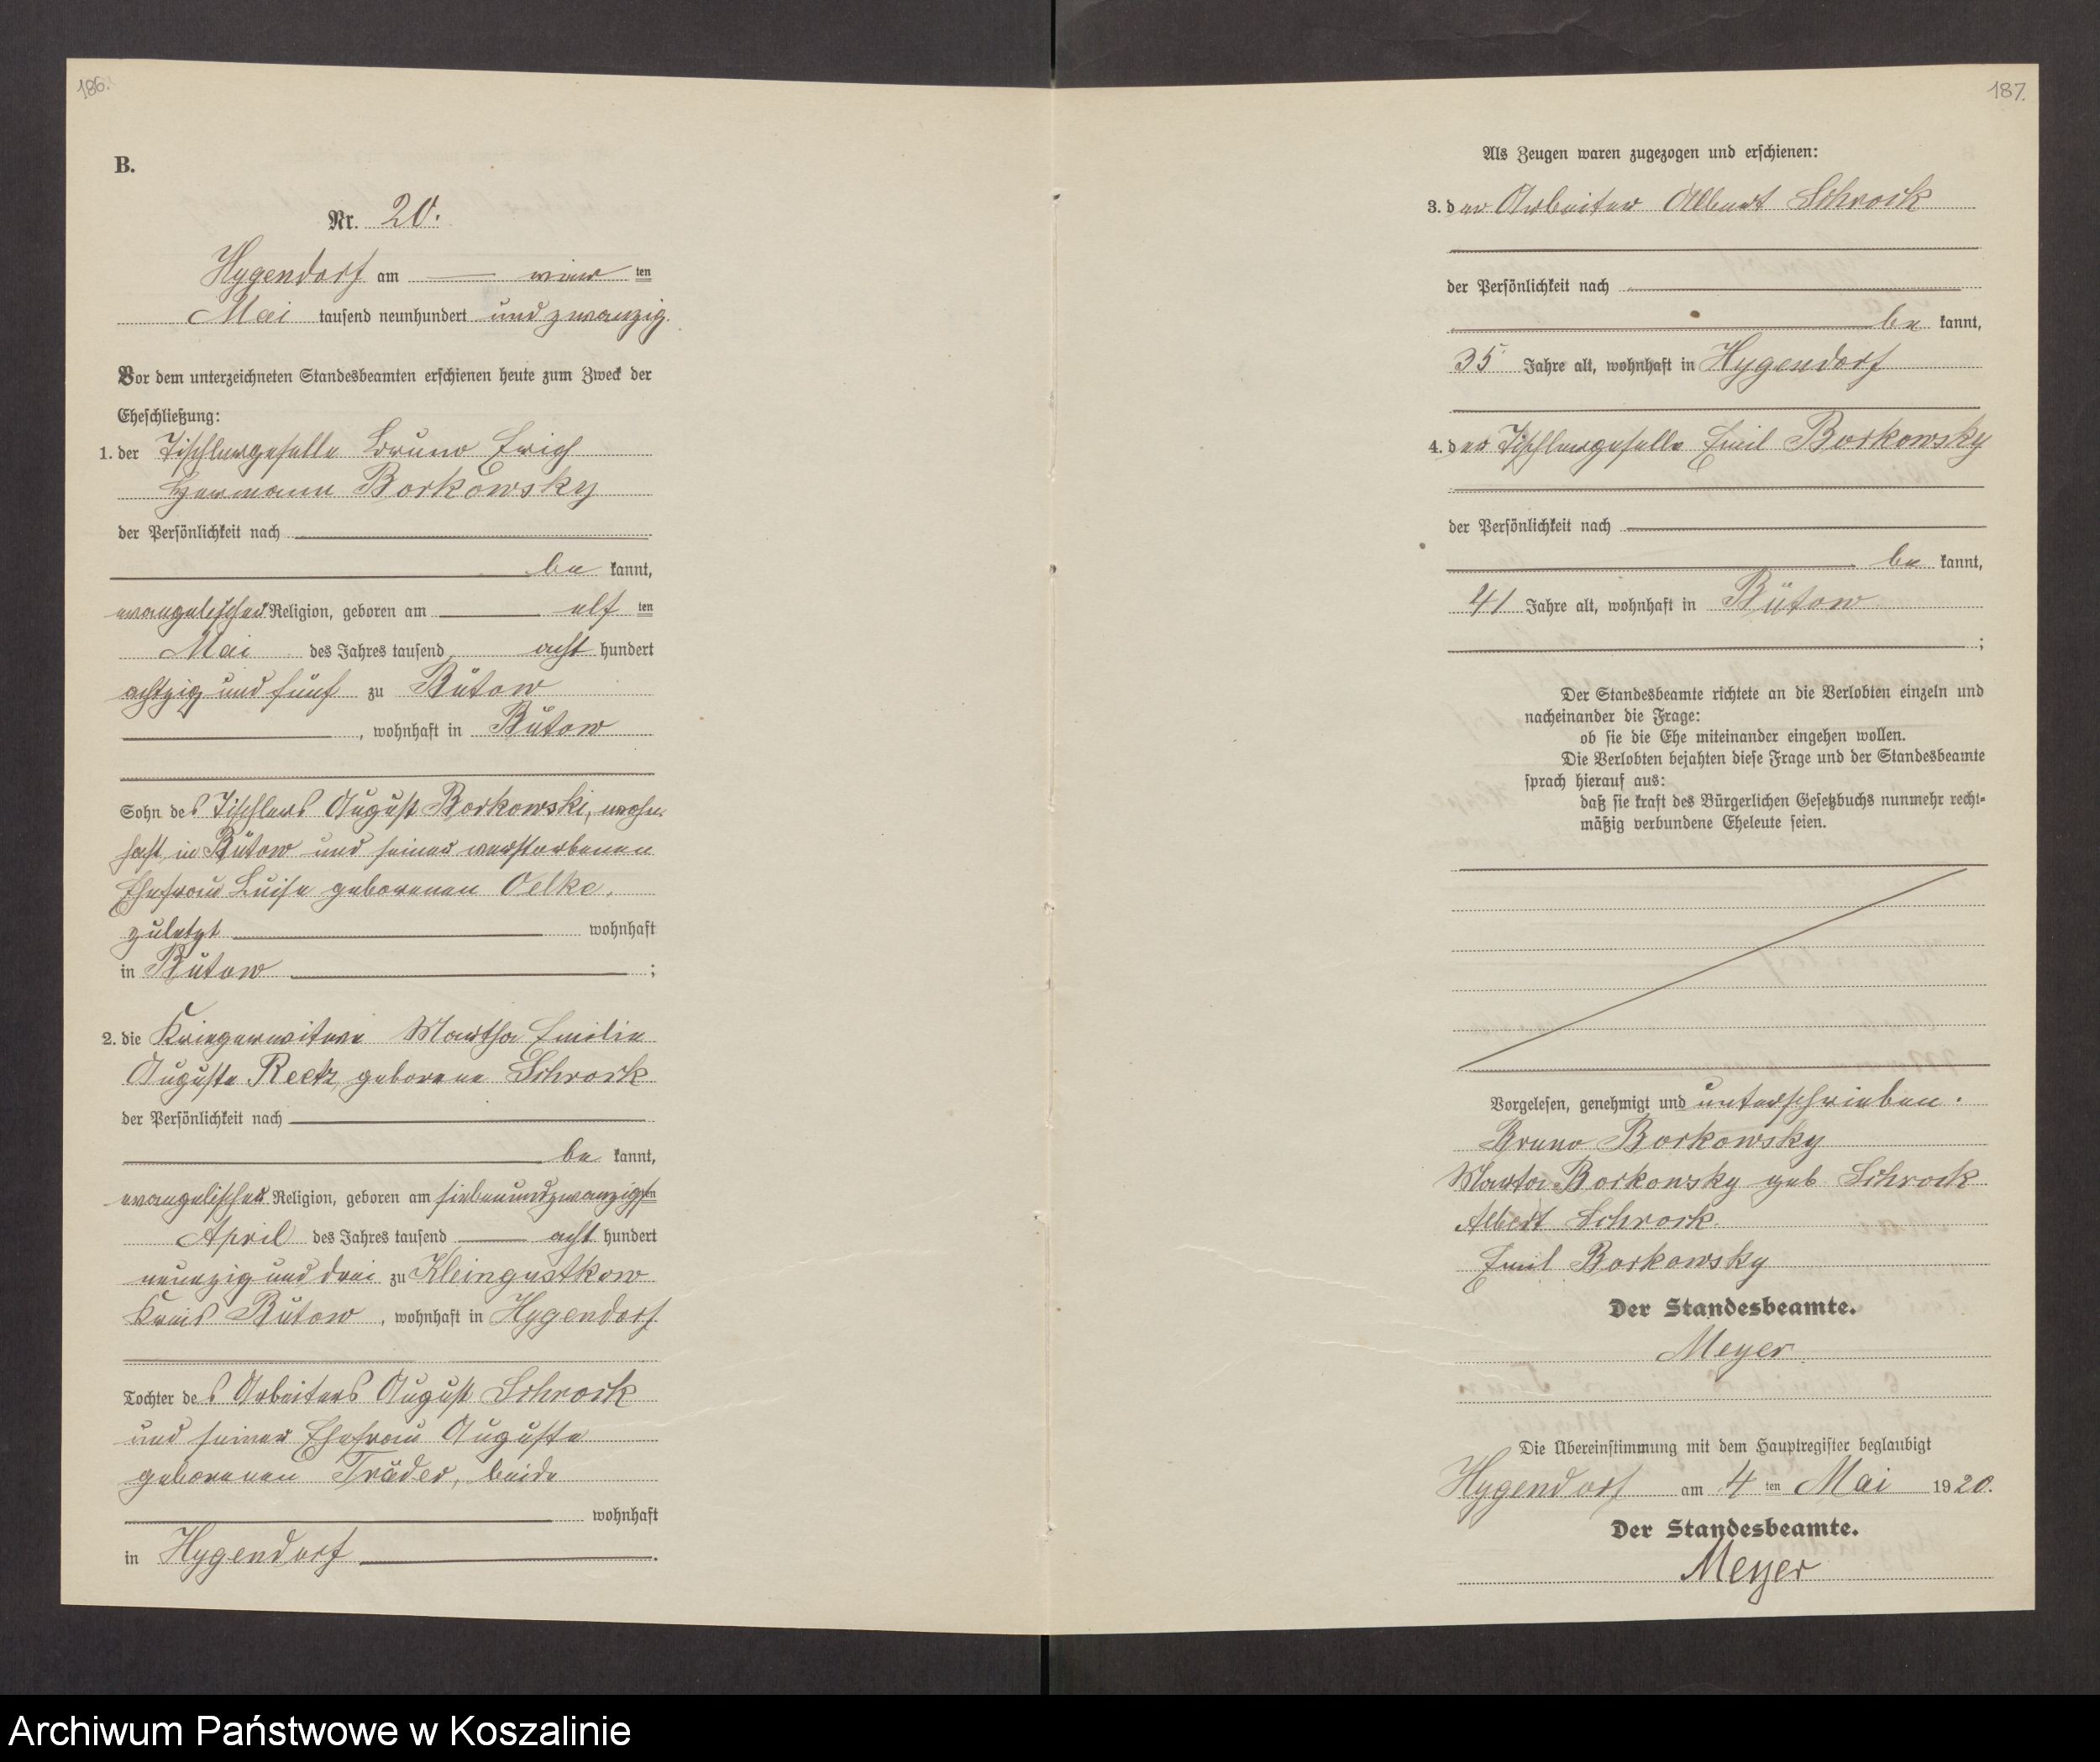 186.
B.
Nr. 20.
Hygendorf am vier ten
Mai tausend neunhundert und zwanzig.
Vor dem unterzeichneten Standesbeamten erschienen heute zum Zweck der
Eheschließung:
1. der Tischlergeselle Bruno Erich
Hermann Borkowsky
der Persönlichkeit nach
be kannt,
evangelischer Religion, geboren am elf ten
Mai des Jahres tausend acht hundert
achtzig und fünf zu Bütow
, wohnhaft in Bütow
Sohn des Tischlers August Borkowski, wohn-
haft in Bütow und seiner verstorbenen
Ehefrau Luise geborenen Oelke,
zuletzt wohnhaft
in Bütow ;
2. die Kriegerwitwe Martha Emilie
Auguste Reetz, geborene Schrock
der Persönlichkeit nach
be kannt,
evangelischer Religion, geboren am siebenundzwanzigsten
April des Jahres tausend acht hundert
neunzig und drei zu Kleingustkow
Kreis Bütow , wohnhaft in Hygendorf
Tochter des Arbeiters August Schrock
und seiner Ehefrau Auguste
geborenen Träder, beide
wohnhaft
in Hygendorf .
187.
Als Zeugen waren zugezogen und erschienen:
3. der Arbeiter Albert Schrock
der Persönlichkeit nach
be kannt,
35 Jahre alt, wohnhaft in Hygendorf
4. der Tischlergeselle Emil Borkowsky
der Persönlichkeit nach
be kannt,
41 Jahre alt, wohnhaft in Bütow
;
Der Standesbeamte richtete an die Verlobten einzeln und
nacheinander die Frage:
ob sie die Ehe miteinander eingehen wollen.
Die Verlobten bejahten diese Frage und der Standesbeamte
sprach hierauf aus:
daß sie kraft des Bürgerlichen Gesetzbuchs nunmehr recht-
mäßig verbundene Eheleute seien.
Vorgelesen, genehmigt und unterschrieben.
Bruno Borkowsky
Marta Borkowsky geb Schrock
Albert Schrock.
Emil Borkowsky
Der Standesbeamte.
Meyer
Die Übereinstimmung mit dem Hauptregister beglaubigt
Hygendorf am 4 ten Mai 1920.
Der Standesbeamte.
Meyer
Archiwum Państwowe w Koszalinie